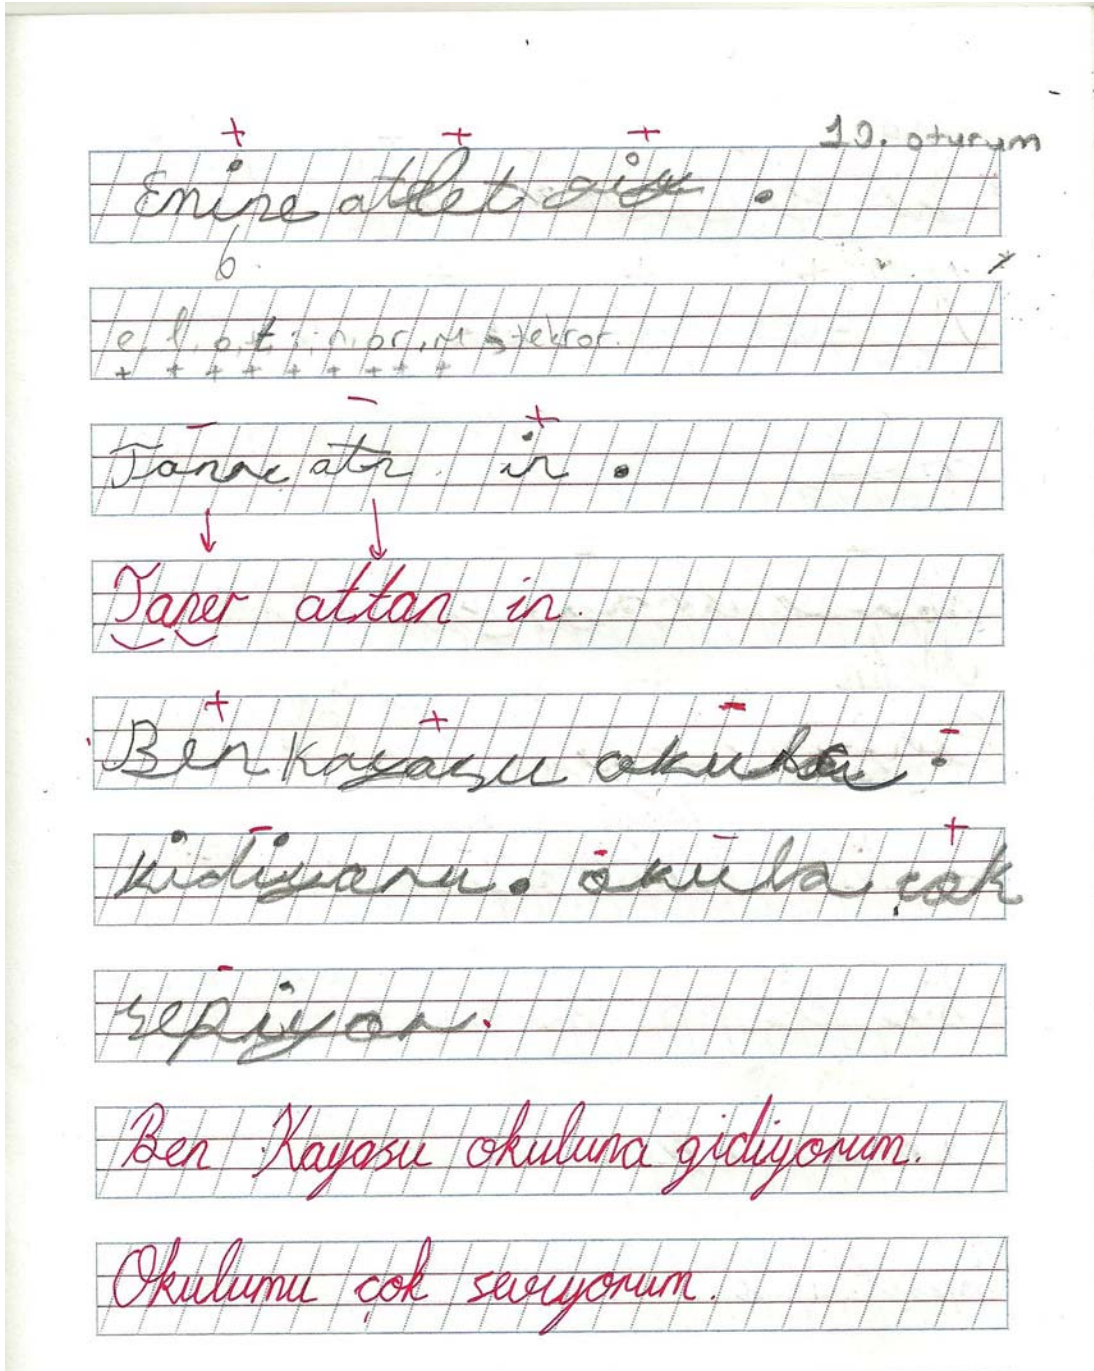 10. oturum
+ + +
Emine atlet
6
e, l, a, t, i, n, o, r, m → tekrar.
+ + + + + + + + +
- - +
Tanre atn in.
Taner attan in.
+ + - -
Ben Kayasu okula.
- - - +
kidiyoru. okula çok
-
sepiyor.
Ben Kayasu okuluna gidiyorum.
Okulumu çok seviyorum.